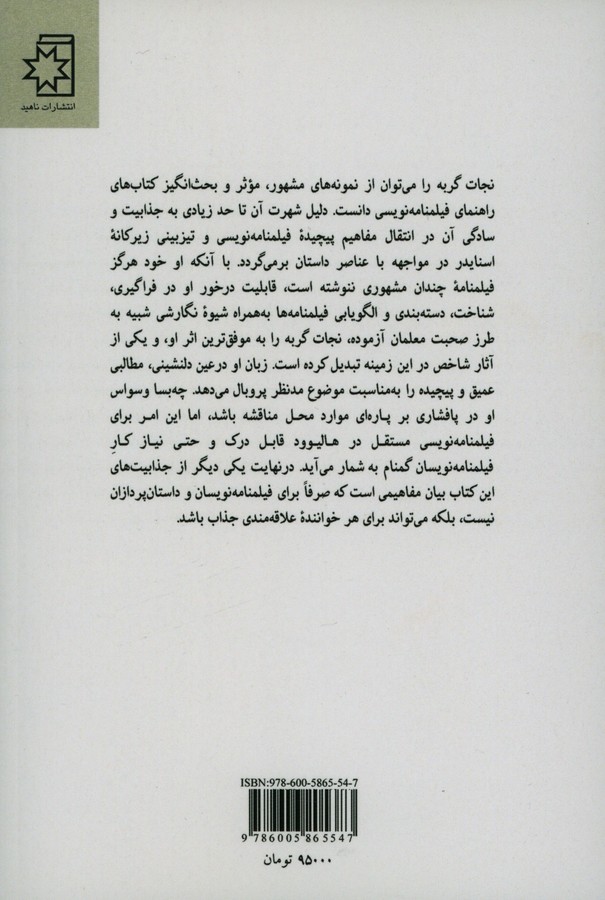 انتشارات ناهید
نجات گربه را می‌توان از نمونه‌های مشهور، مؤثر و بحث‌انگیز کتاب‌های
راهنمای فیلمنامه‌نویسی دانست. دلیل شهرت آن تا حد زیادی به جذابیت و
سادگی آن در انتقال مفاهیم پیچیدهٔ فیلمنامه‌نویسی و تیزبینی زیرکانهٔ
اسنایدر در مواجهه با عناصر داستان برمی‌گردد. با آنکه او خود هرگز
فیلمنامهٔ چندان مشهوری ننوشته است، قابلیت درخور او در فراگیری،
شناخت، دسته‌بندی و الگویابی فیلمنامه‌ها به‌همراه شیوهٔ نگارشی شبیه به
طرز صحبت معلمان آزموده، نجات گربه را به موفق‌ترین اثر او، و یکی از
آثار شاخص در این زمینه تبدیل کرده است. زبان او درعین دلنشینی، مطالبی
عمیق و پیچیده را به‌مناسبت موضوع مدنظر پروبال می‌دهد. چه‌بسا وسواس
او در پافشاری بر پاره‌ای موارد محل مناقشه باشد، اما این امر برای
فیلمنامه‌نویسی مستقل در هالیوود قابل درک و حتی نیاز کارِ
فیلمنامه‌نویسان گمنام به شمار می‌آید. درنهایت یکی دیگر از جذابیت‌های
این کتاب بیان مفاهیمی است که صرفاً برای فیلمنامه‌نویسان و داستان‌پردازان
نیست، بلکه می‌تواند برای هر خوانندهٔ علاقه‌مندی جذاب باشد.
ISBN:978-600-5865-54-7
9 786005 865547
۹۵۰۰۰ تومان